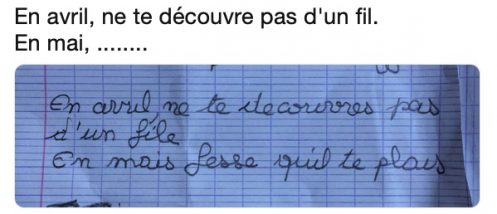 En avril, ne te découvre pas d'un fil.
En mai, ........
En avril ne te decouvres pas
d'un file
En mais fesse qu'il te plais